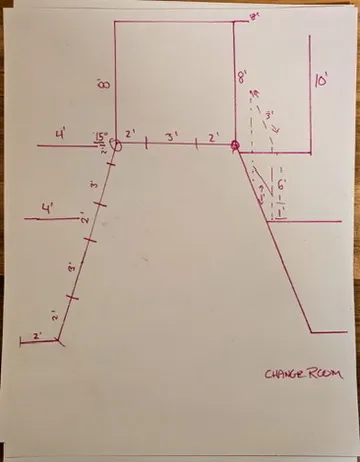 8'
8'
8'
10'
4'
15"
2'
2'
3'
2'
3'
3'
6'
4'
2'
3'
2'
2'
CHANGE ROOM